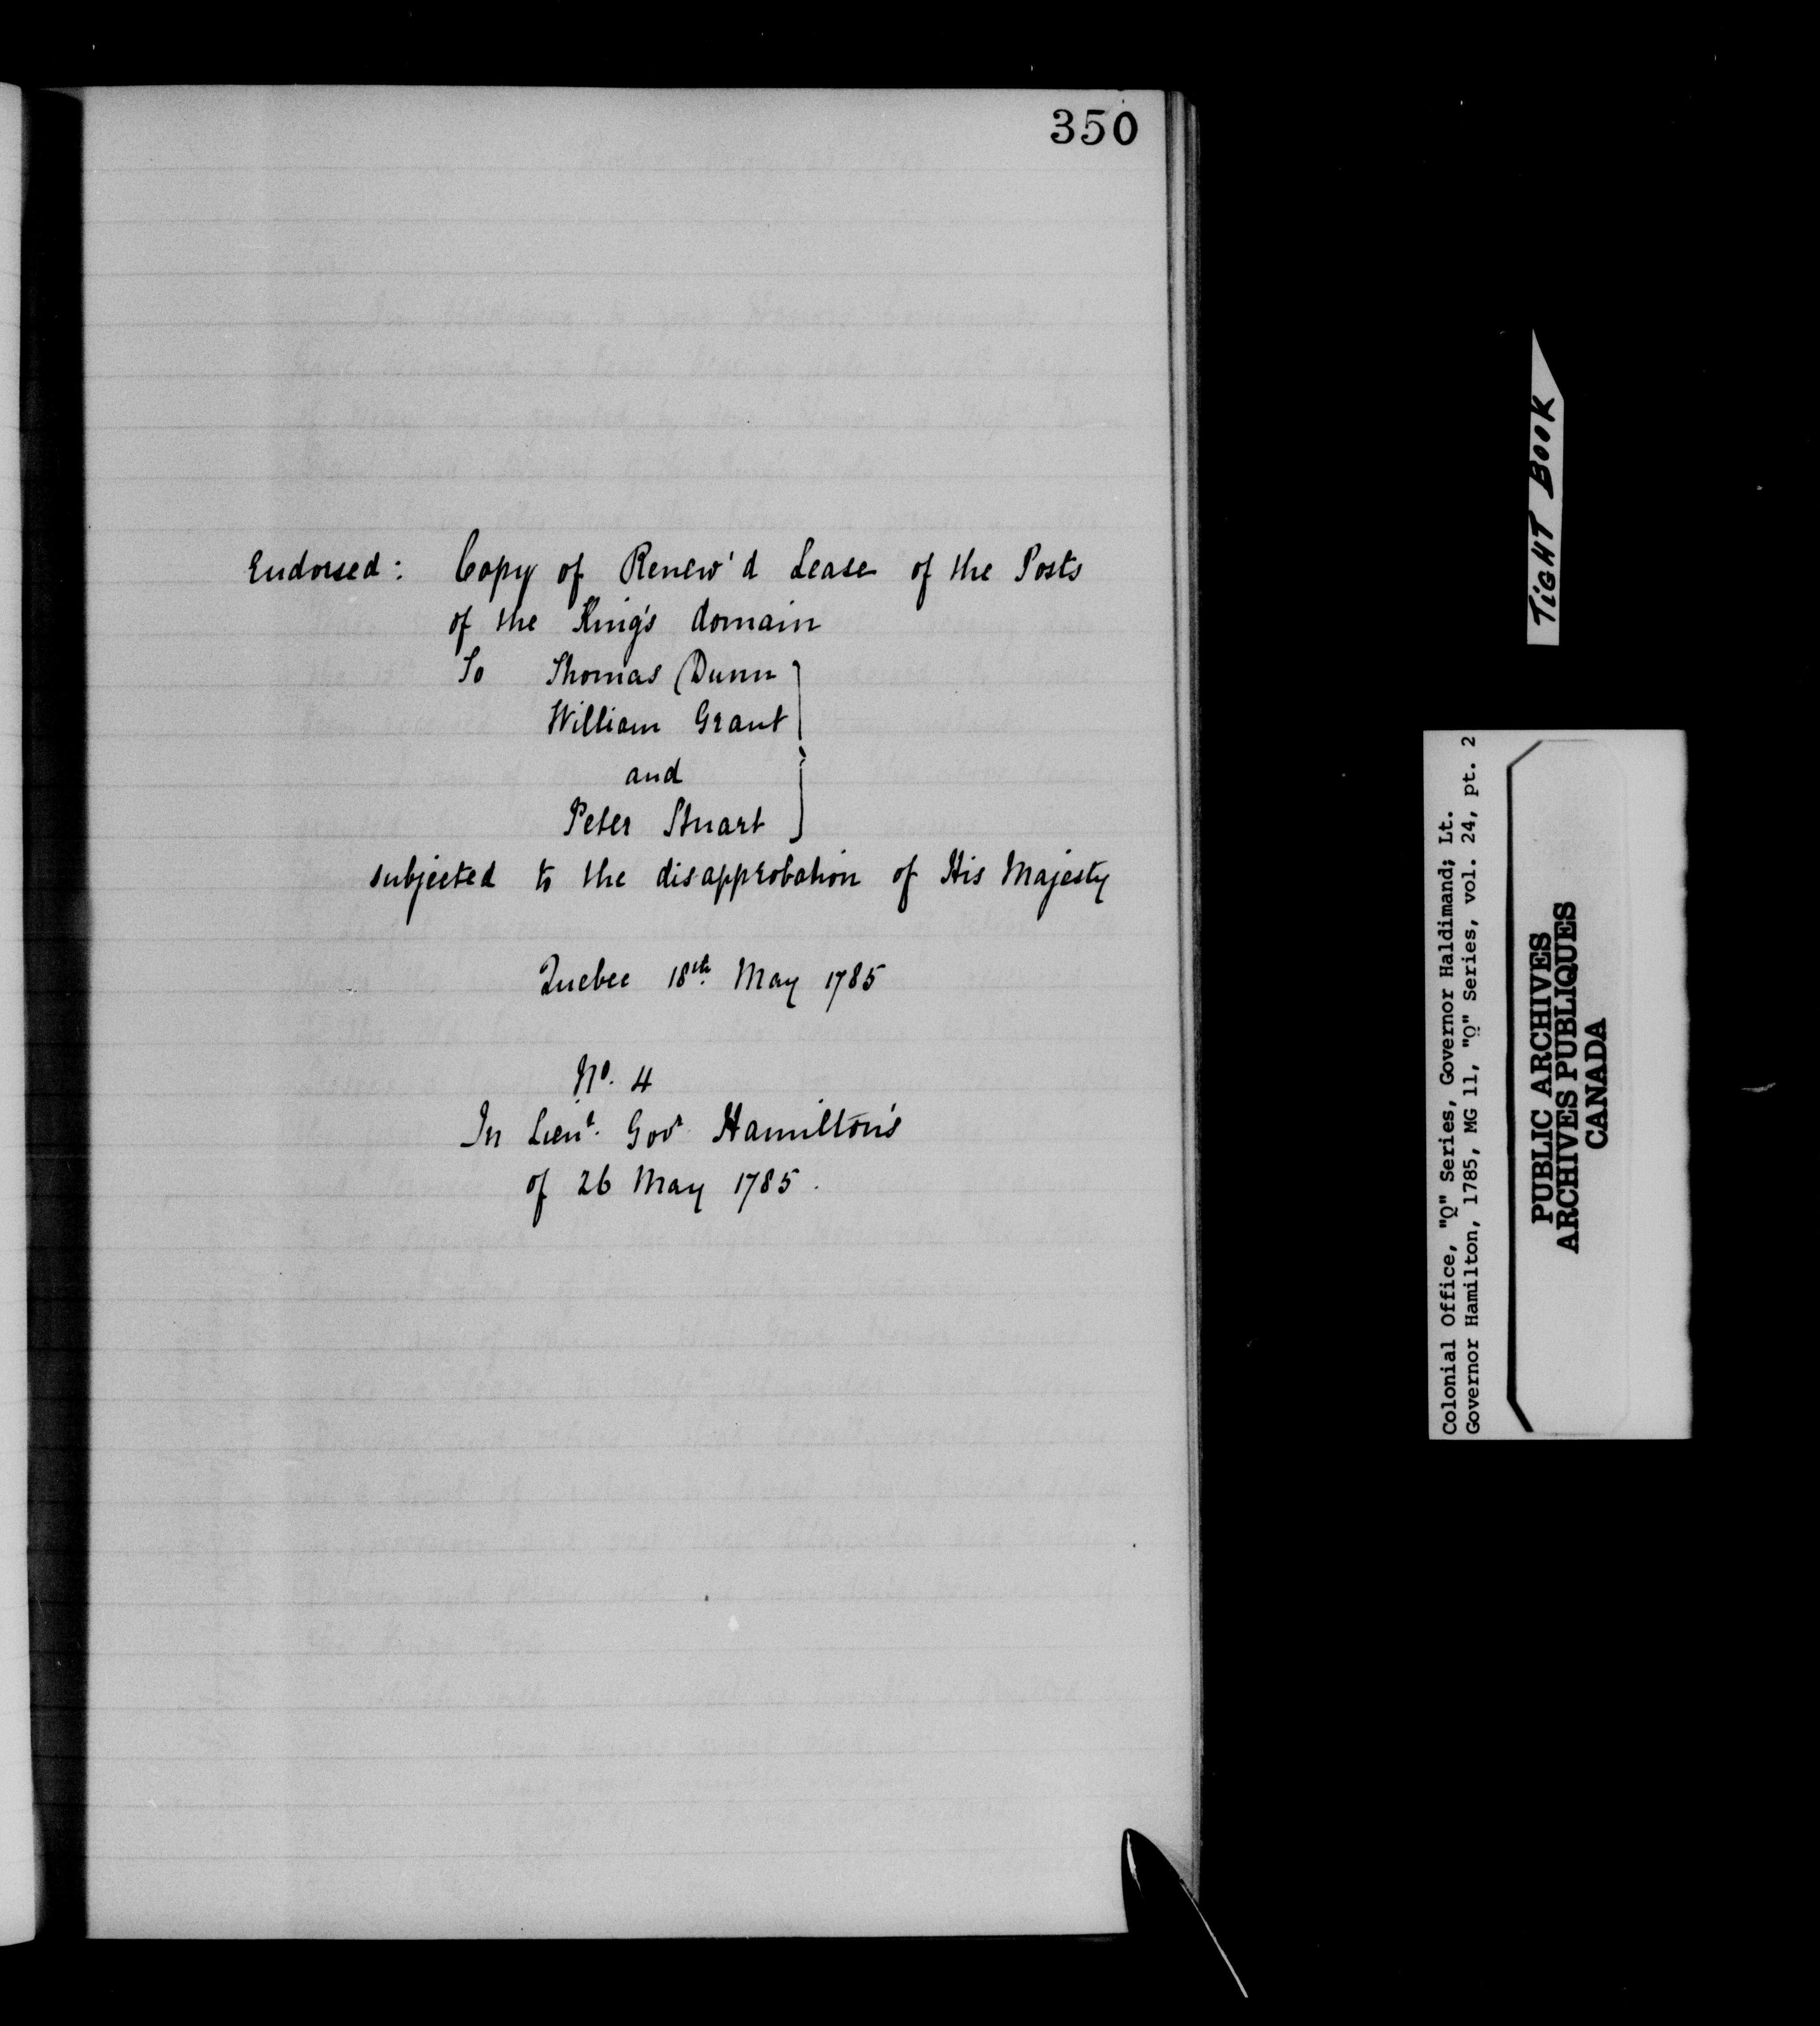 350
Endorsed: Copy of Renew'd Lease of the Posts
of the King's domain
To Thomas Dunn
William Grant
and
Peter Stuart
subjected to the disapprobation of His Majesty
Quebec 18th. May 1785
No. 4
In Lieut. Govr Hamilton's
of 26 May 1785.
TIGHT BOOK
Colonial Office, "Q" Series, Governor Haldimand; Lt.
Governor Hamilton, 1785, MG 11, "Q" Series, vol. 24, pt. 2
PUBLIC ARCHIVES
ARCHIVES PUBLIQUES
CANADA